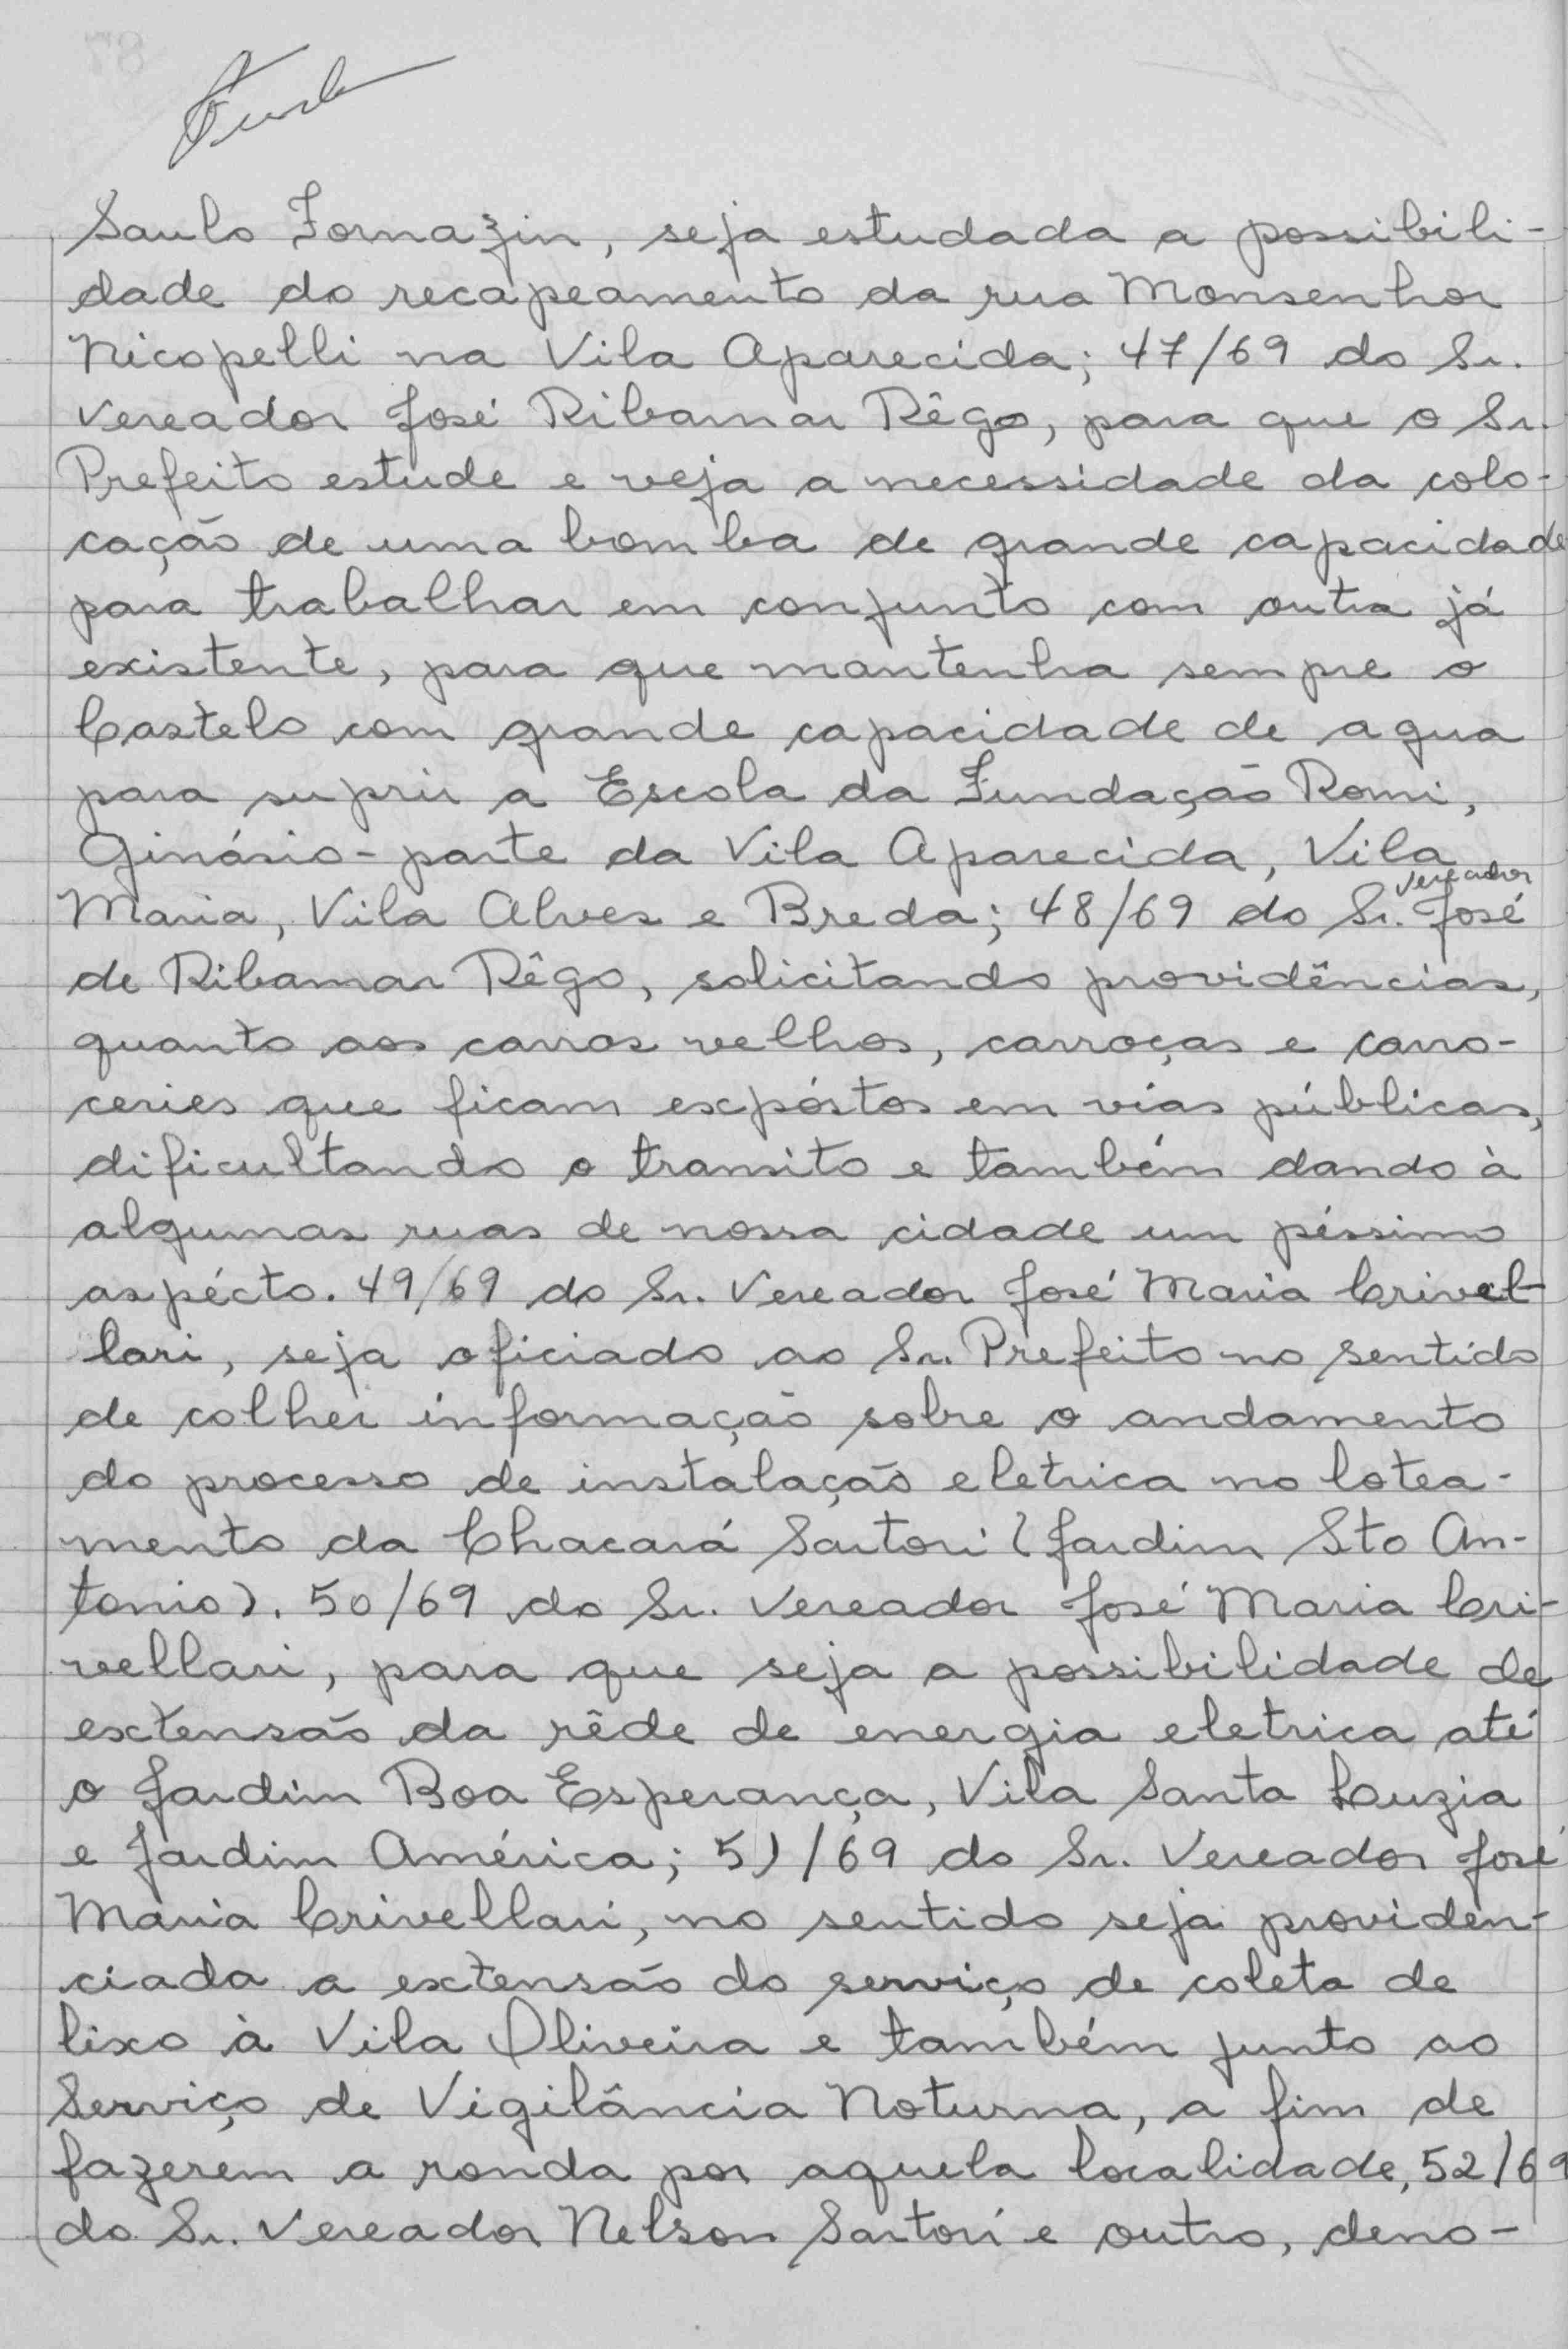 Saulo Fornazin, seja estudada a possibili-
dade do recapeamento da rua Monsenhor
Nicopelli na Vila Aparecida; 47/69 do Sr.
Vereador José Ribamar Rêgo, para que o Sr.
Prefeito estude e veja a necessidade da colo-
cação de uma bomba de grande capacidade
para trabalhar em conjunto com outra já
existente, para que mantenha sempre o
Castelo com grande capacidade de agua
para suprir a Escola da Fundação Romi,
Ginásio-parte da Vila Aparecida, Vila
Maria, Vila Alves e Breda; 48/69 do Sr. Vereador José
de Ribamar Rêgo, solicitando providências,
quanto aos carros velhos, carroças e carro-
ceries que ficam expóstos em vias públicas,
dificultando o transito e também dando à
algumas ruas de nossa cidade um péssimo
aspécto. 49/69 do Sr. Vereador José Maria Crivel-
lari, seja oficiado ao Sr. Prefeito no sentido
de colher informação sobre o andamento
do processo de instalação eletrica no lotea-
mento da Chacará Sartori (Jardim Sto An-
tonio). 50/69 do Sr. Vereador José Maria Cri-
vellari, para que seja a possibilidade de
extensão da rêde de energia eletrica até
o Jardim Boa Esperança, Vila Santa Luzia
e Jardim América; 51/69 do Sr. Vereador José
Maria Crivellari, no sentido seja providen-
ciada a extensão do serviço de coleta de
lixo à Vila Oliveira e também junto ao
Serviço de Vigilância Noturna, a fim de
fazerem a ronda por aquela localidade, 52/69
do Sr. Vereador Nelson Sartori e outro, deno-